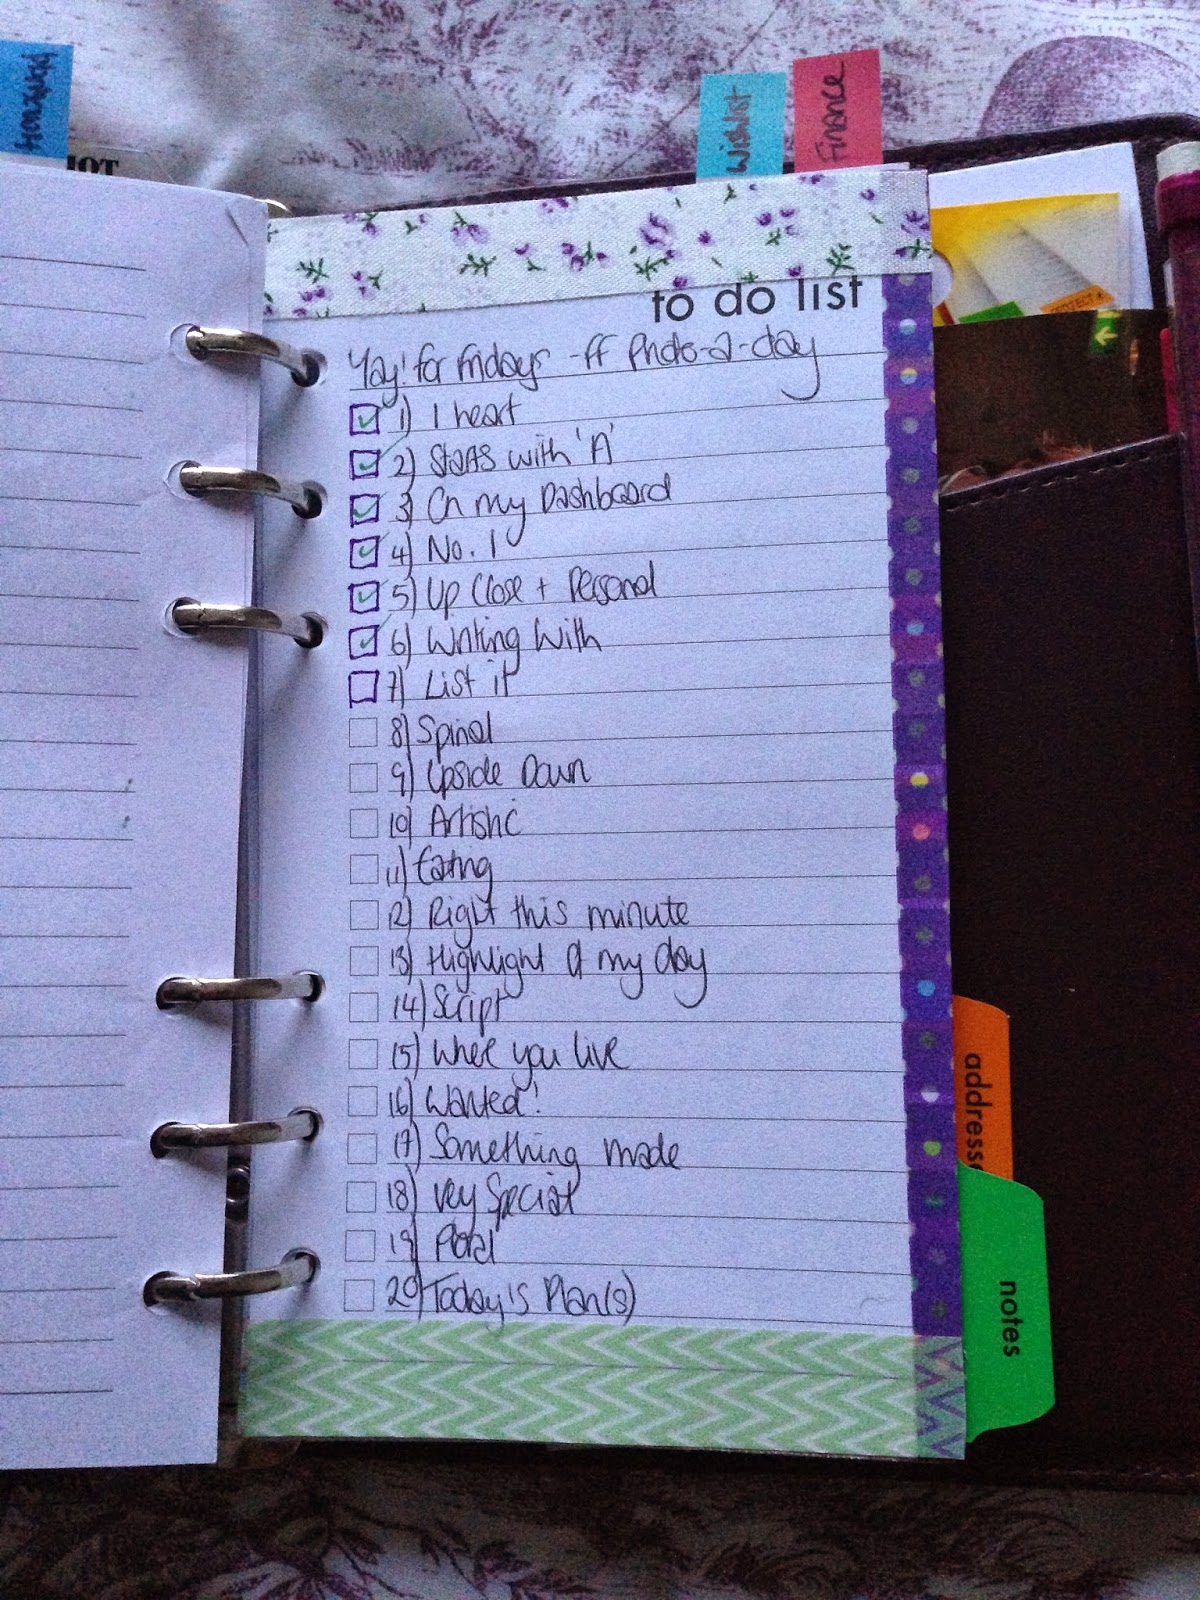 wishlist
Finance
to do list
Yay! for Fridays - FF Photo-a-day
1) I heart
2) Starts with 'A'
3) On my Dashboard
4) No. 1
5) Up Close + Personal
6) Writing With
7) List it
8) Spinal
9) Upside Down
10) Artistic
11) Eating
12) Right this minute
13) Highlight of my day
14) Script
15) Where you live
16) Wanted!
17) Something made
18) Very Special
19) Floral
20) Today's Plan(s)
addresse
notes